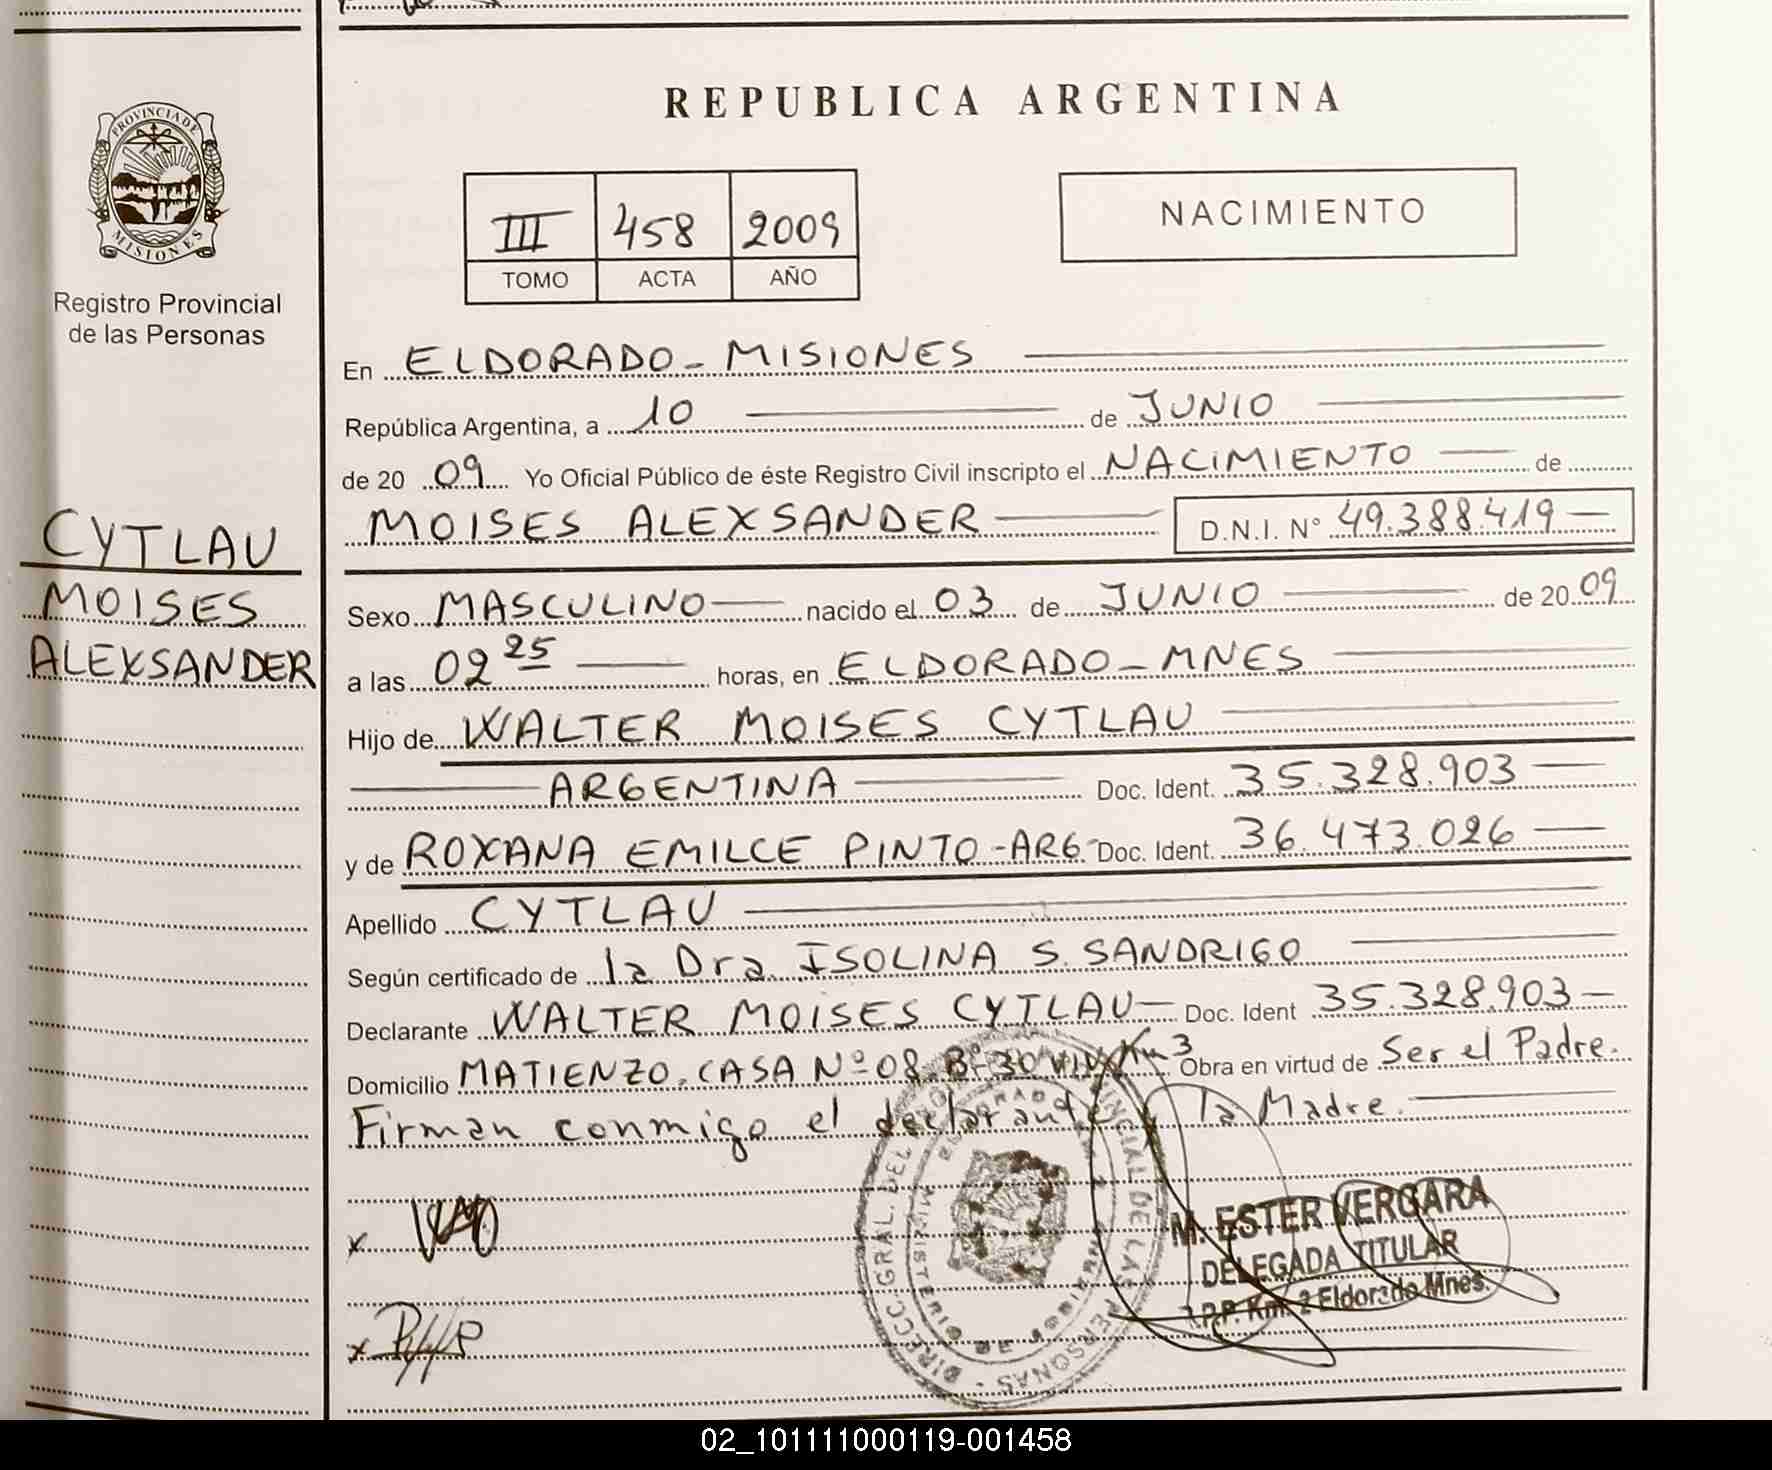 PROVINCIA DE
MISIONES
Registro Provincial
de las Personas
CYTLAU
MOISES
ALEXSANDER
REPUBLICA ARGENTINA
III 458 2009
TOMO ACTA AÑO
NACIMIENTO
En ELDORADO - MISIONES
República Argentina, a 10 de JUNIO
de 20 09 Yo Oficial Público de éste Registro Civil inscripto el NACIMIENTO de
MOISES ALEXSANDER D.N.I. N° 49.388.419
Sexo MASCULINO nacido el 03 de JUNIO de 20 09
a las 02 25 horas, en ELDORADO - MNES
Hijo de WALTER MOISES CYTLAU
ARGENTINA Doc. Ident. 35.328.903
y de ROXANA EMILCE PINTO - ARG - Doc. Ident. 36.473.026
Apellido CYTLAU
Según certificado de la Dra ISOLINA S. SANDRIGO
Declarante WALTER MOISES CYTLAU Doc. Ident 35.328.903
Domicilio MATIENZO. CASA Nº 08. Bº 30 VIV. Km 3 Obra en virtud de Ser el Padre.
Firman conmigo el declarante y la Madre.
DIRECC. GRAL. DEL PROVINCIAL DE LAS PERSONAS
MINISTERIO DE
M. ESTER VERGARA
DELEGADA TITULAR
R.P.P. Km. 2 Eldorado Mnes.
x
x
02_101111000119-001458